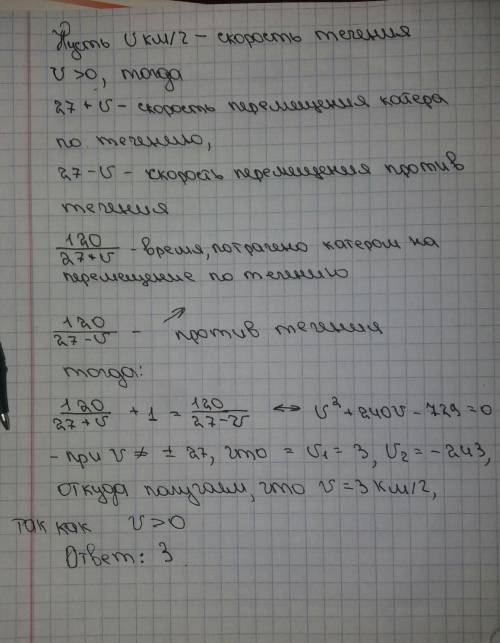 Пусть v км/г – скорость течения
v > 0, тогда
27 + v – скорость перемещения катера
по течению,
27 – v – скорость перемещения против
течения
120/(27+v) – время, потрачено катером на
перемещение по течению
120/(27–v) – ↗ против течения
тогда:
120/(27+v) + 1 = 120/(27–v) ⇔ v² + 240v – 729 = 0
– при v ≠ ± 27, что = v₁ = 3, v₂ = – 243,
откуда получаем, что v = 3 км/г,
так как v > 0
Ответ: 3